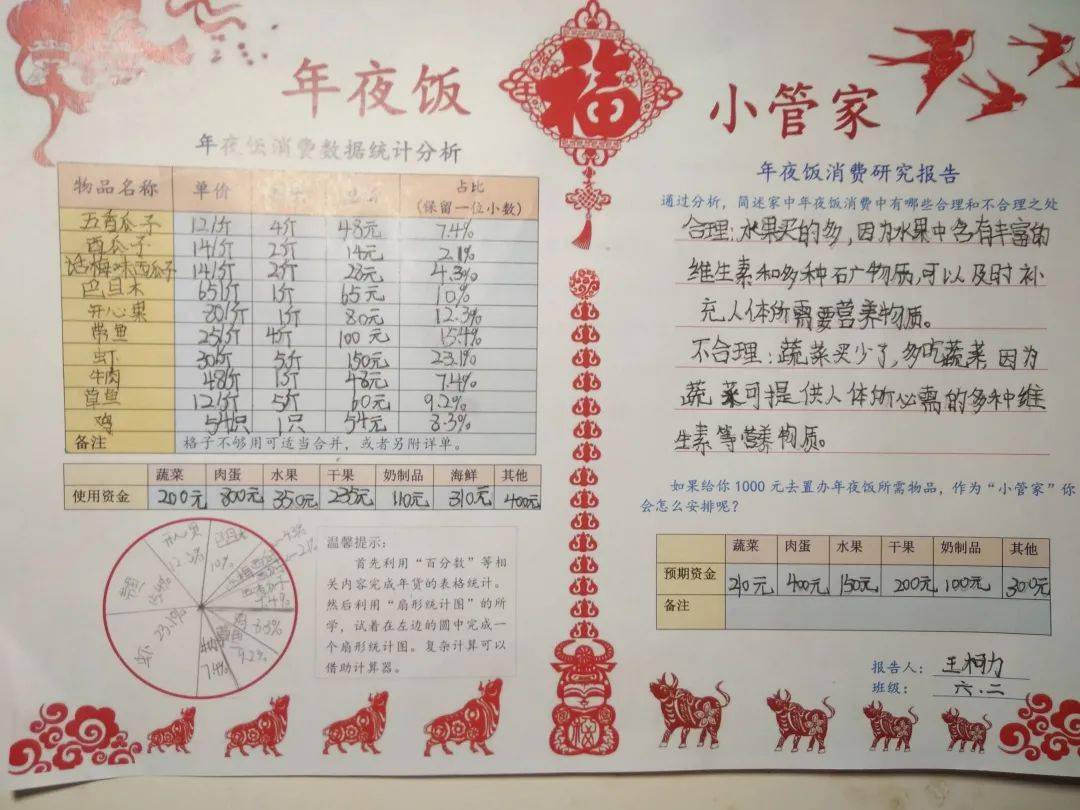 年夜饭
福
小管家
年夜饭消费数据统计分析
物品名称 单价 占比
(保留一位小数)
五香瓜子 12/斤 4斤 48元 7.4%
西瓜子 14/斤 2斤 14元 2.1%
话梅味西瓜子 14/斤 2斤 28元 4.3%
巴旦木 65/斤 1斤 65元 10%
开心果 80/斤 1斤 80元 12.3%
带鱼 25/斤 4斤 100元 15.4%
虾 30/斤 5斤 150元 23.1%
牛肉 48/斤 1斤 48元 7.4%
草鱼 12/斤 5斤 60元 9.2%
鸡 54/只 1只 54元 8.3%
备注 格子不够用可适当合并，或者另附详单。
蔬菜 肉蛋 水果 干果 奶制品 海鲜 其他
使用资金 200元 800元 350元 235元 110元 310元 400元
开心果 12.3%
巴旦木 10%
4.3%
2.1%
7.4%
鸡 8.3%
草鱼 9.2%
牛肉 7.4%
虾 23.1%
带鱼 15.4%
温馨提示：
首先利用“百分数”等相
关内容完成年货的表格统计。
然后利用“扇形统计图”的所
学，试着在左边的圆中完成一
个扇形统计图。复杂计算可以
借助计算器。
年夜饭消费研究报告
通过分析，简述家中年夜饭消费中有哪些合理和不合理之处
合理：水果买的多，因为水果中含有丰富的
维生素和多种石广物质，可以及时补
充人体所需要营养物质。
不合理：蔬菜买少了，多吃蔬菜 因为
蔬菜可提供人体所必需的多种维
生素等营养物质。
如果给你1000元去置办年夜饭所需物品，作为“小管家”你
会怎么安排呢？
蔬菜 肉蛋 水果 干果 奶制品 其他
预期资金 210元 400元 150元 200元 100元 300元
备注
报告人：王柯力
班级：六.二
福